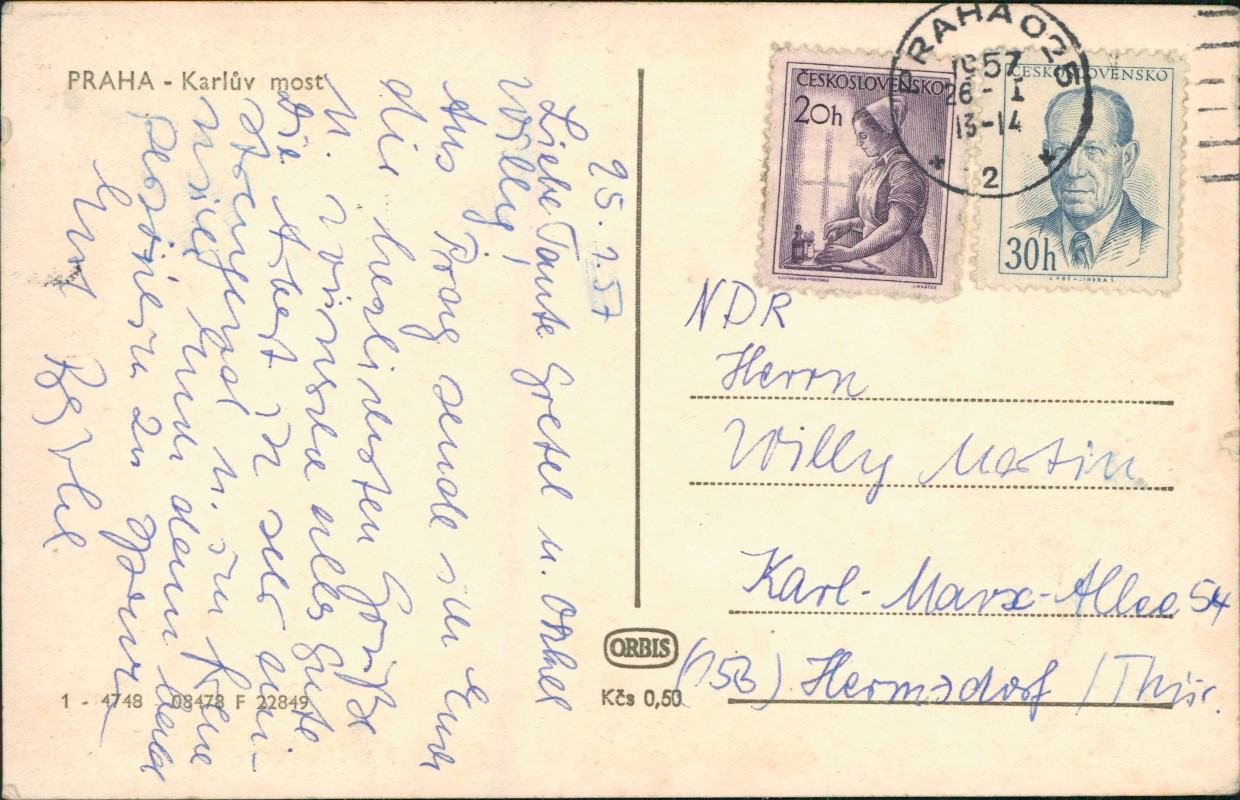 PRAHA - Karlův most
25.1.57
Liebe Tante Gretel u. Onkel
Willy,
Aus Prag sende ich Euch
die herzlichsten Grüße
u. wünsche alles Gute
Die Arbeit ist sehr an-
strengend u. ich
mich
Euer
1 - 4748 08478 F 22849
ORBIS
Kčs 0,50
ČESKOSLOVENSKO
20h
ČESKOSLOVENSKO
30h
PRAHA 025
1957
26-I
13-14
2
NDR
Herrn
Willy Martin
Karl-Marx-Allee 54
(15B) Hermsdorf /Thür.